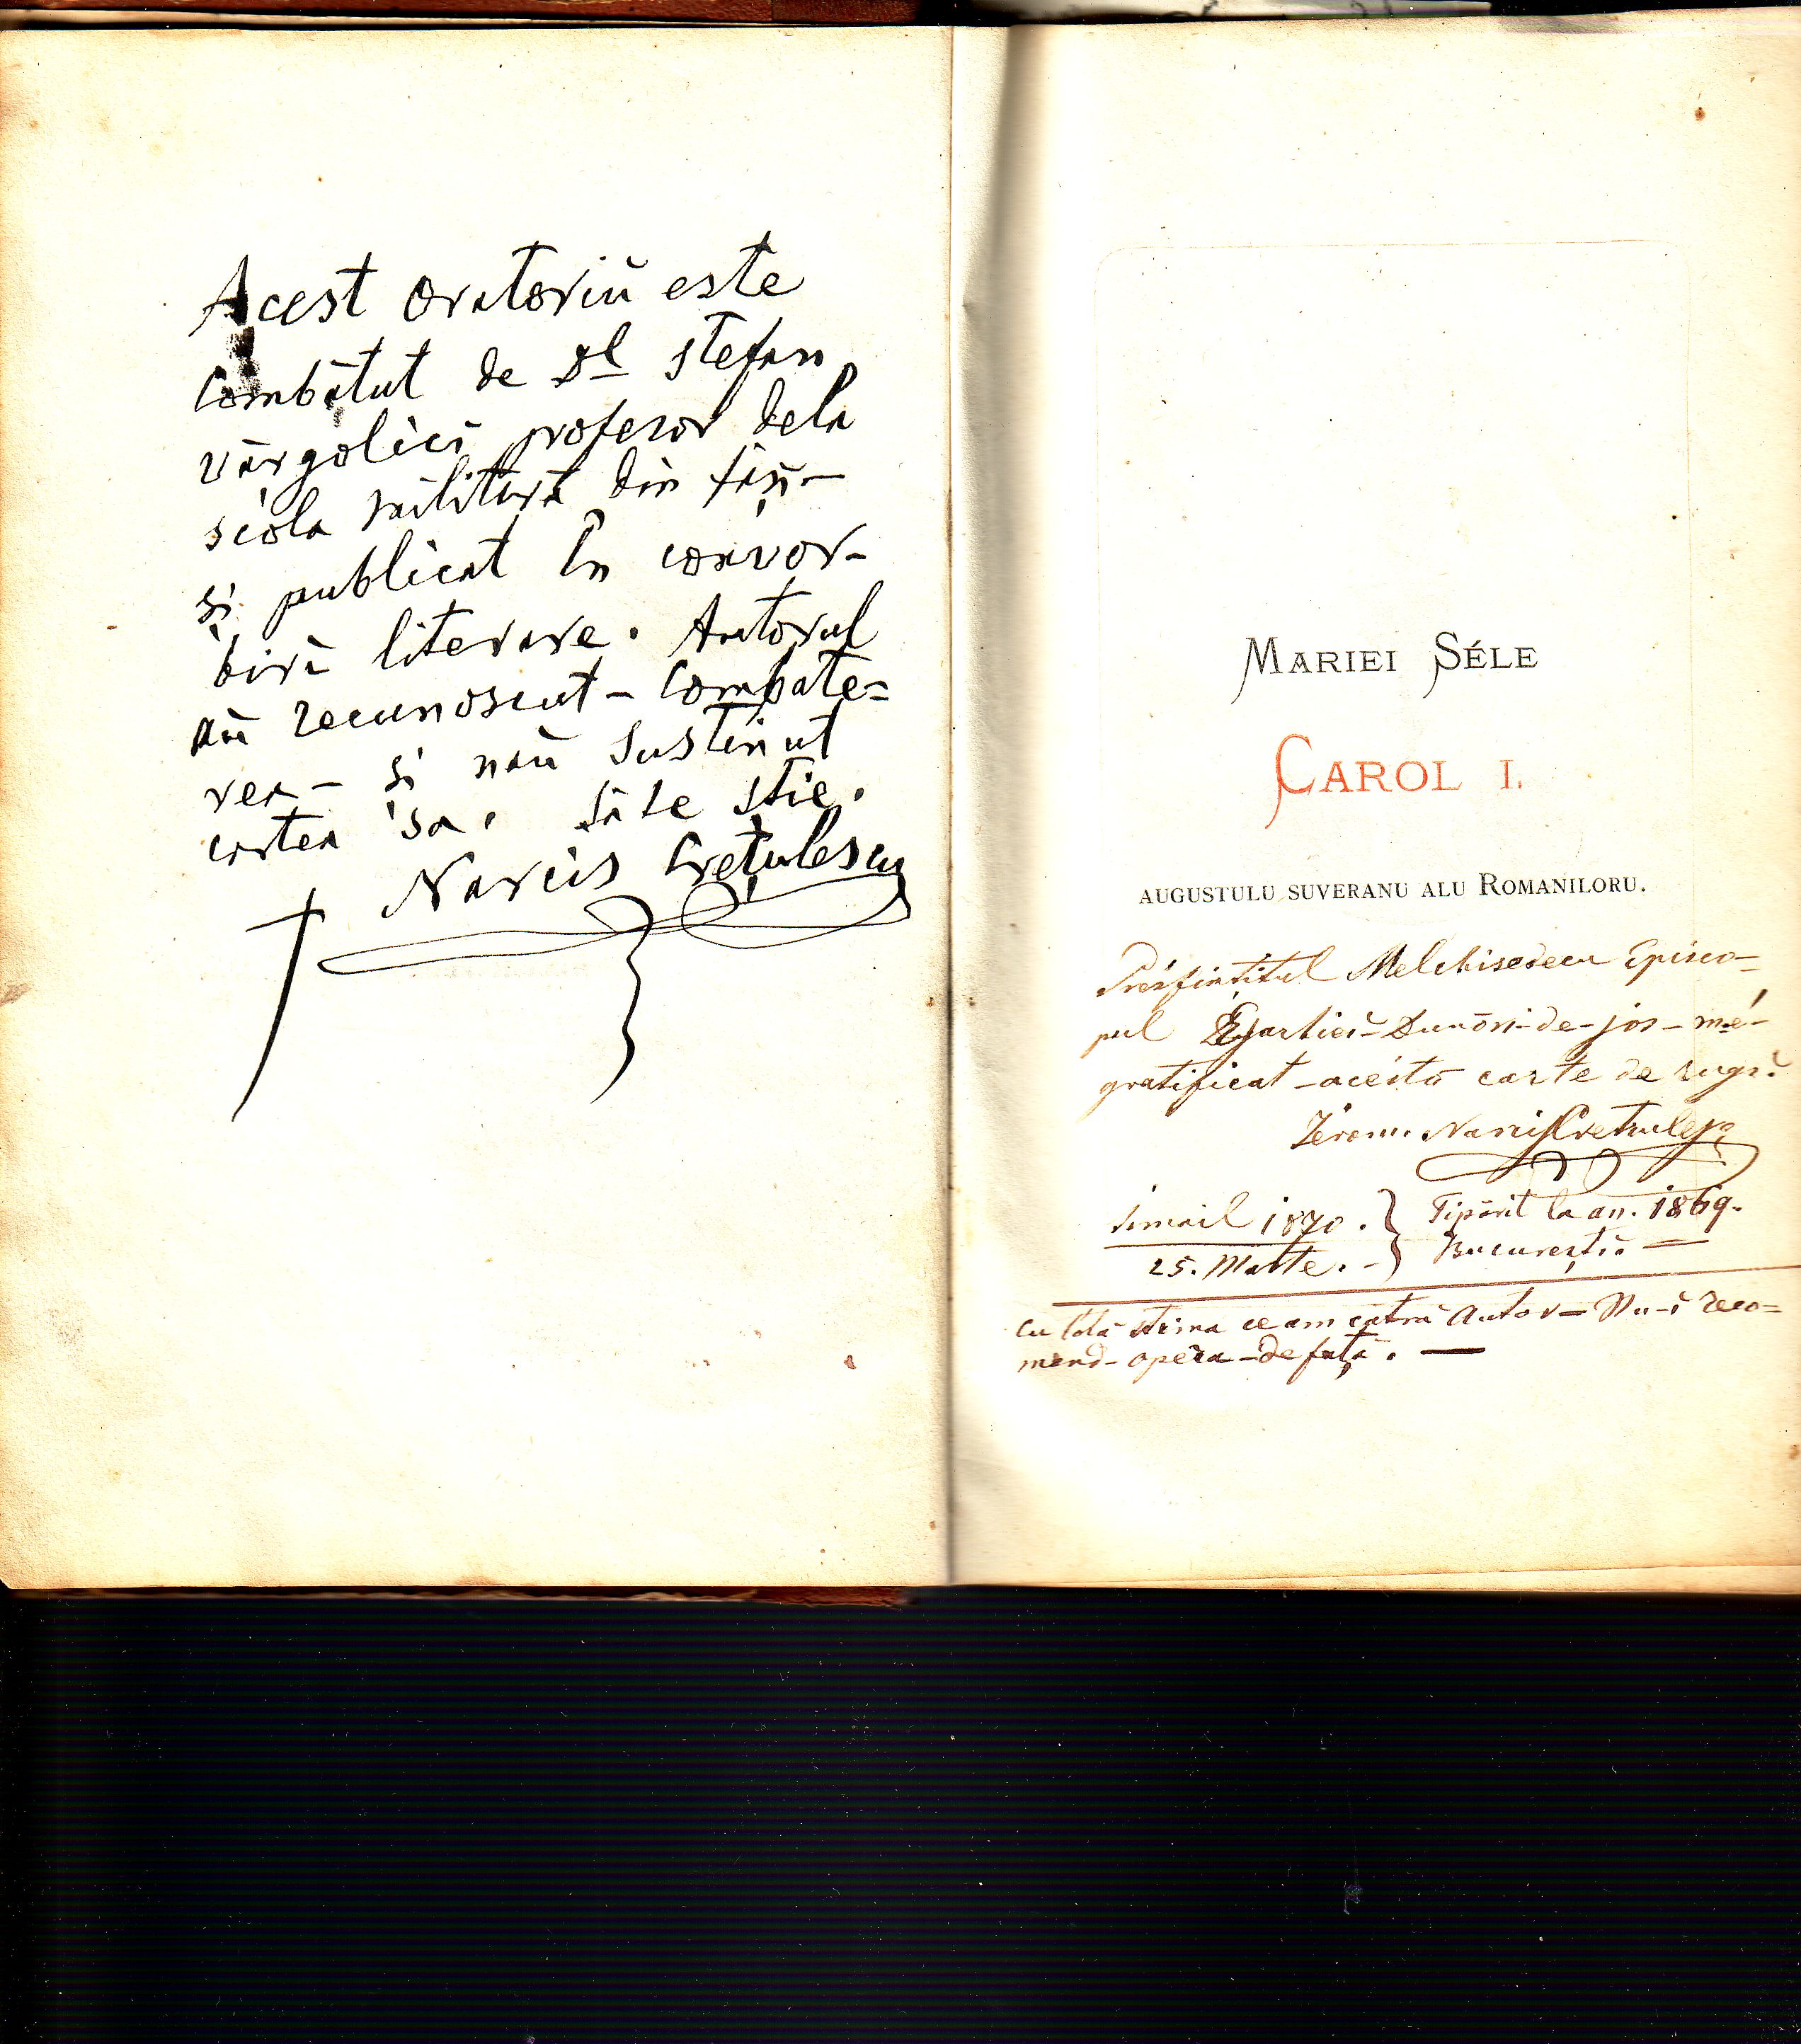 Acest oratoriŭ este
Combătut de Dl Stefan
vârgolici profesor dela
scóla militară din Iașĭ–
și publicat în convor–
biri literare. Autorul
aŭ recunoscut – Combate=
rea – și naŭ Susținut
cartea sa. Să se știe.
Narcis Crețulescu
MARIEI SÉLE
CAROL I.
AUGUSTULU SUVERANU ALU ROMANILORU.
Présfințitul Melchisedecu Episco=
pul Eparhieĭ–Dunări-de-jos–mé–
gratificat–acéstă carte de rugĭ.
Ierom. Narcis Crețulescu
Ismail 1870. } Tipărit la an. 1869.
25. Marte. – București. —
cu totă stima ce am cătră Autor – Nu-ĭ reco=
mand– opera–de față. —